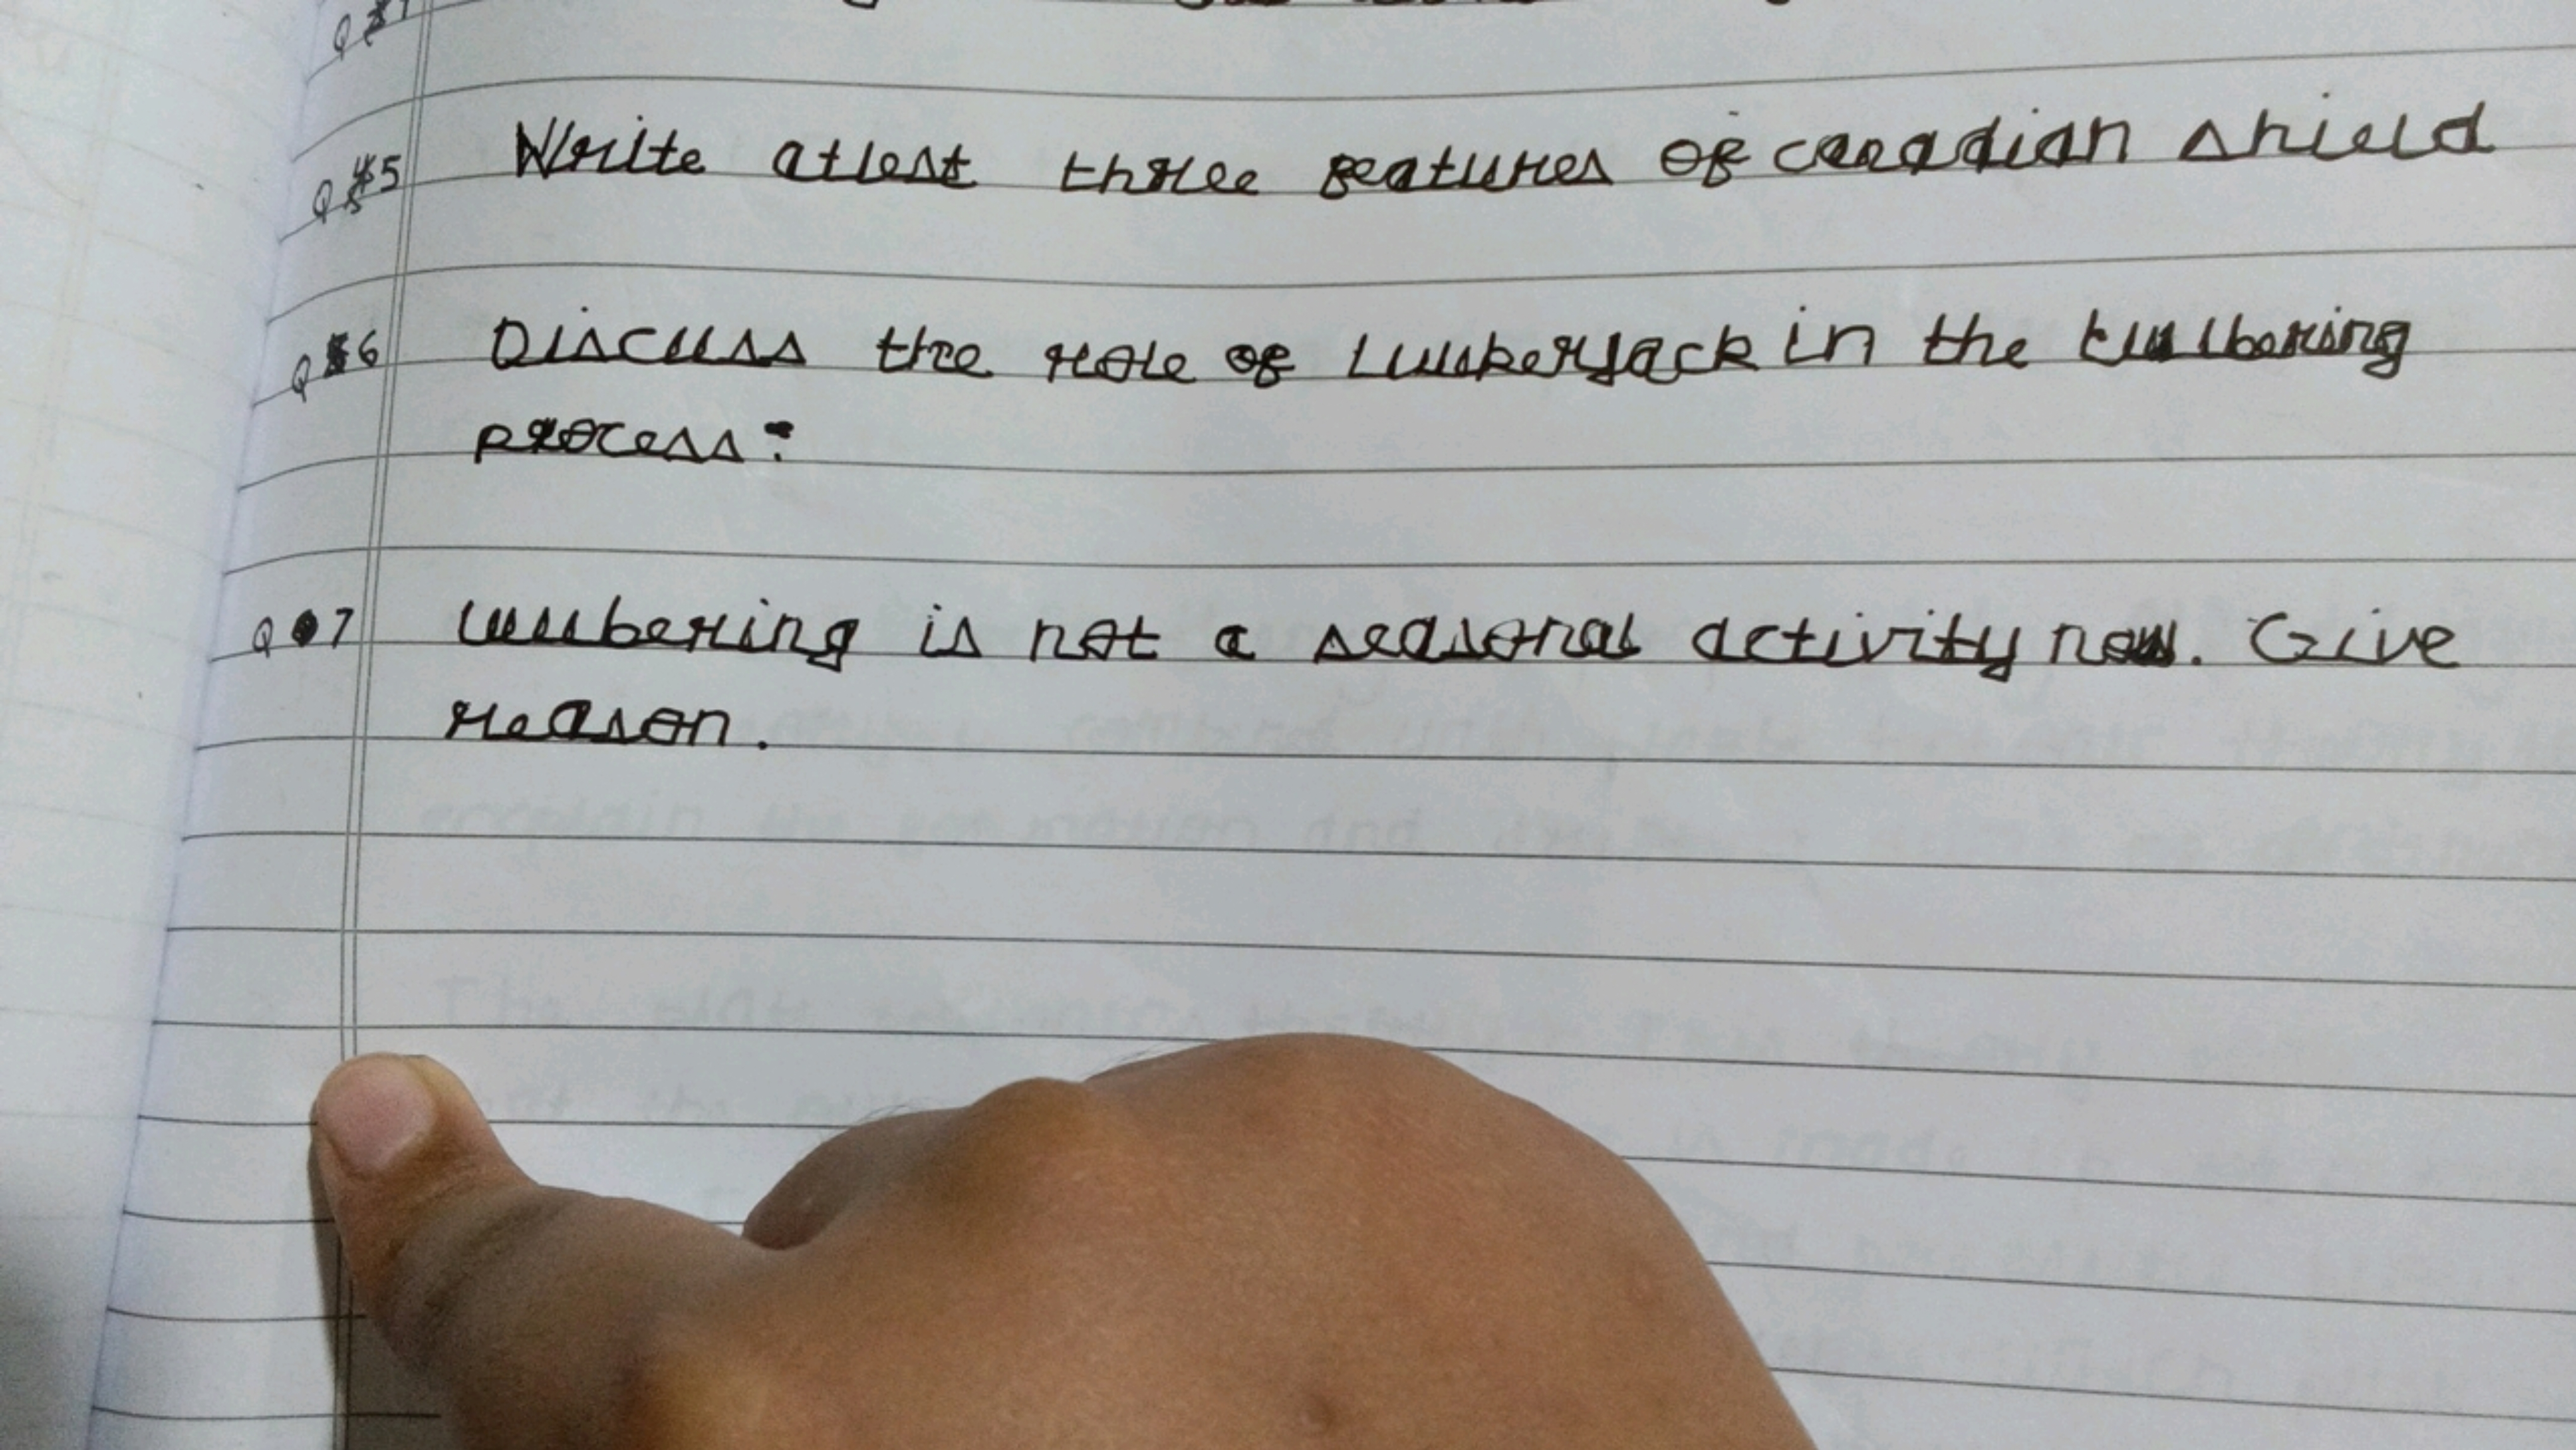 Q5 Write atlest three features of canadian shield
Q6 Discuss the role of Lumberjack in the lumbering
process?
Q7 lumbering is not a seasonal activity now. Give
reason.